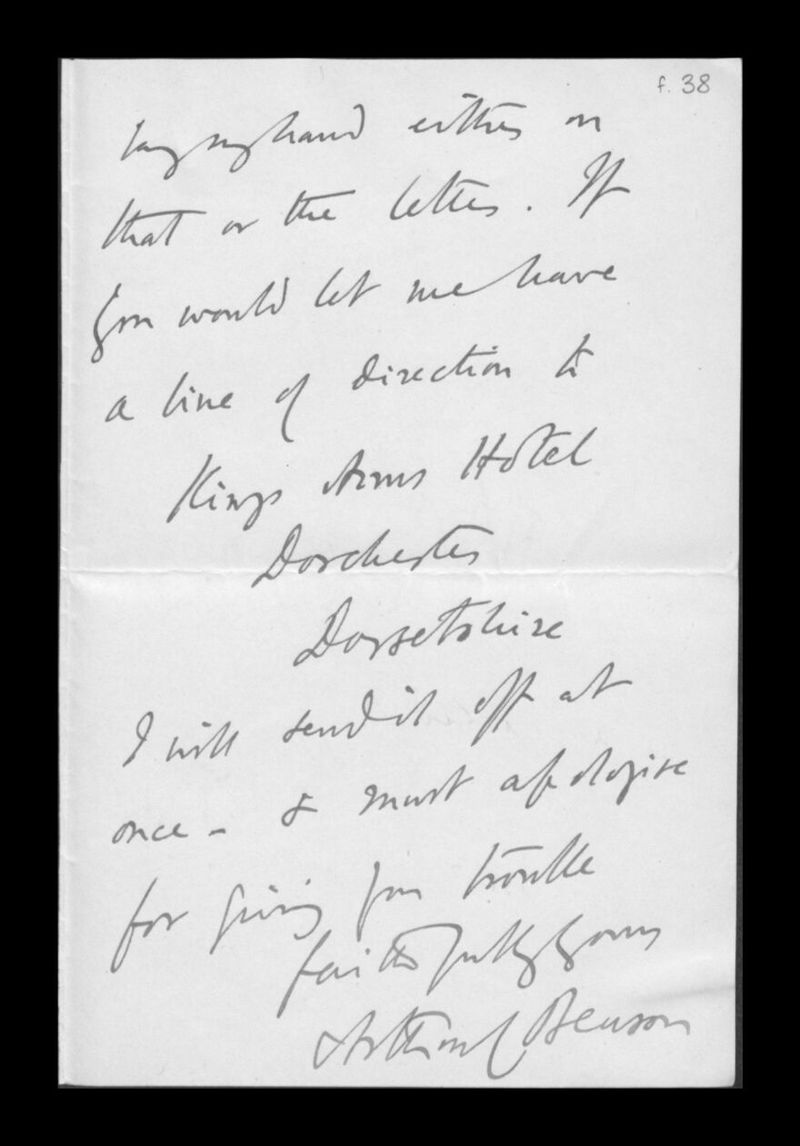 f. 38
lay my hand either on
that or the letter. If
you would let me have
a line of direction to
Kings Arms Hotel
Dorchester
Dorsetshire
I will send it off at
once - & must apologise
for giving you trouble
faithfully yours
Arthur C Benson